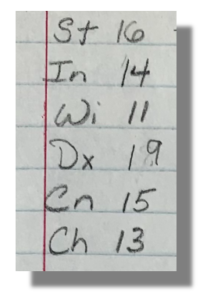 St 16
In 14
Wi 11
Dx 19
Cn 15
Ch 13